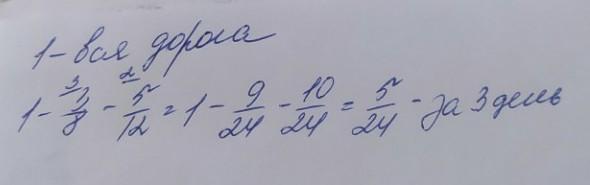 1 - вся дорога
1 - 3/8 - 5/12 = 1 - 9/24 - 10/24 = 5/24 - за 3 день